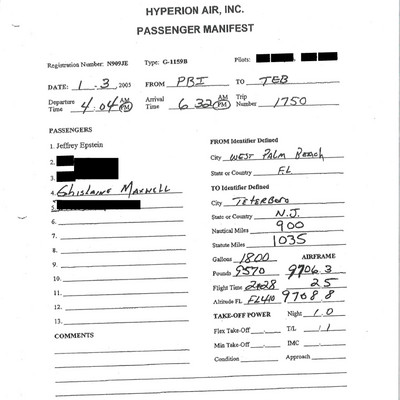 HYPERION AIR, INC.
PASSENGER MANIFEST
Registration Number: N909JE Type: G-1159B Pilots:
DATE: 1 . 3 , 2005 FROM PBI TO TEB
Departure Time 4:04 AM PM Arrival Time 6:32 AM PM Trip Number 1750
PASSENGERS
1. Jeffrey Epstein
2.
3.
4. Ghislaine Maxwell
5.
6.
7.
8.
9.
10.
11.
12.
13.
COMMENTS
FROM Identifier Defined
City WEST PALM BEACH
State or Country FL
TO Identifier Defined
City TETERBORO
State or Country N.J.
Nautical Miles 900
Statute Miles 1035
Gallons 1800 AIRFRAME
Pounds 9570 9706.3
Flight Time 2.5
Altitude FL410 9708.8
TAKE-OFF POWER Night 1.0
Flex Take-Off T/L / 1
Min Take-Off IMC
Condition Approach